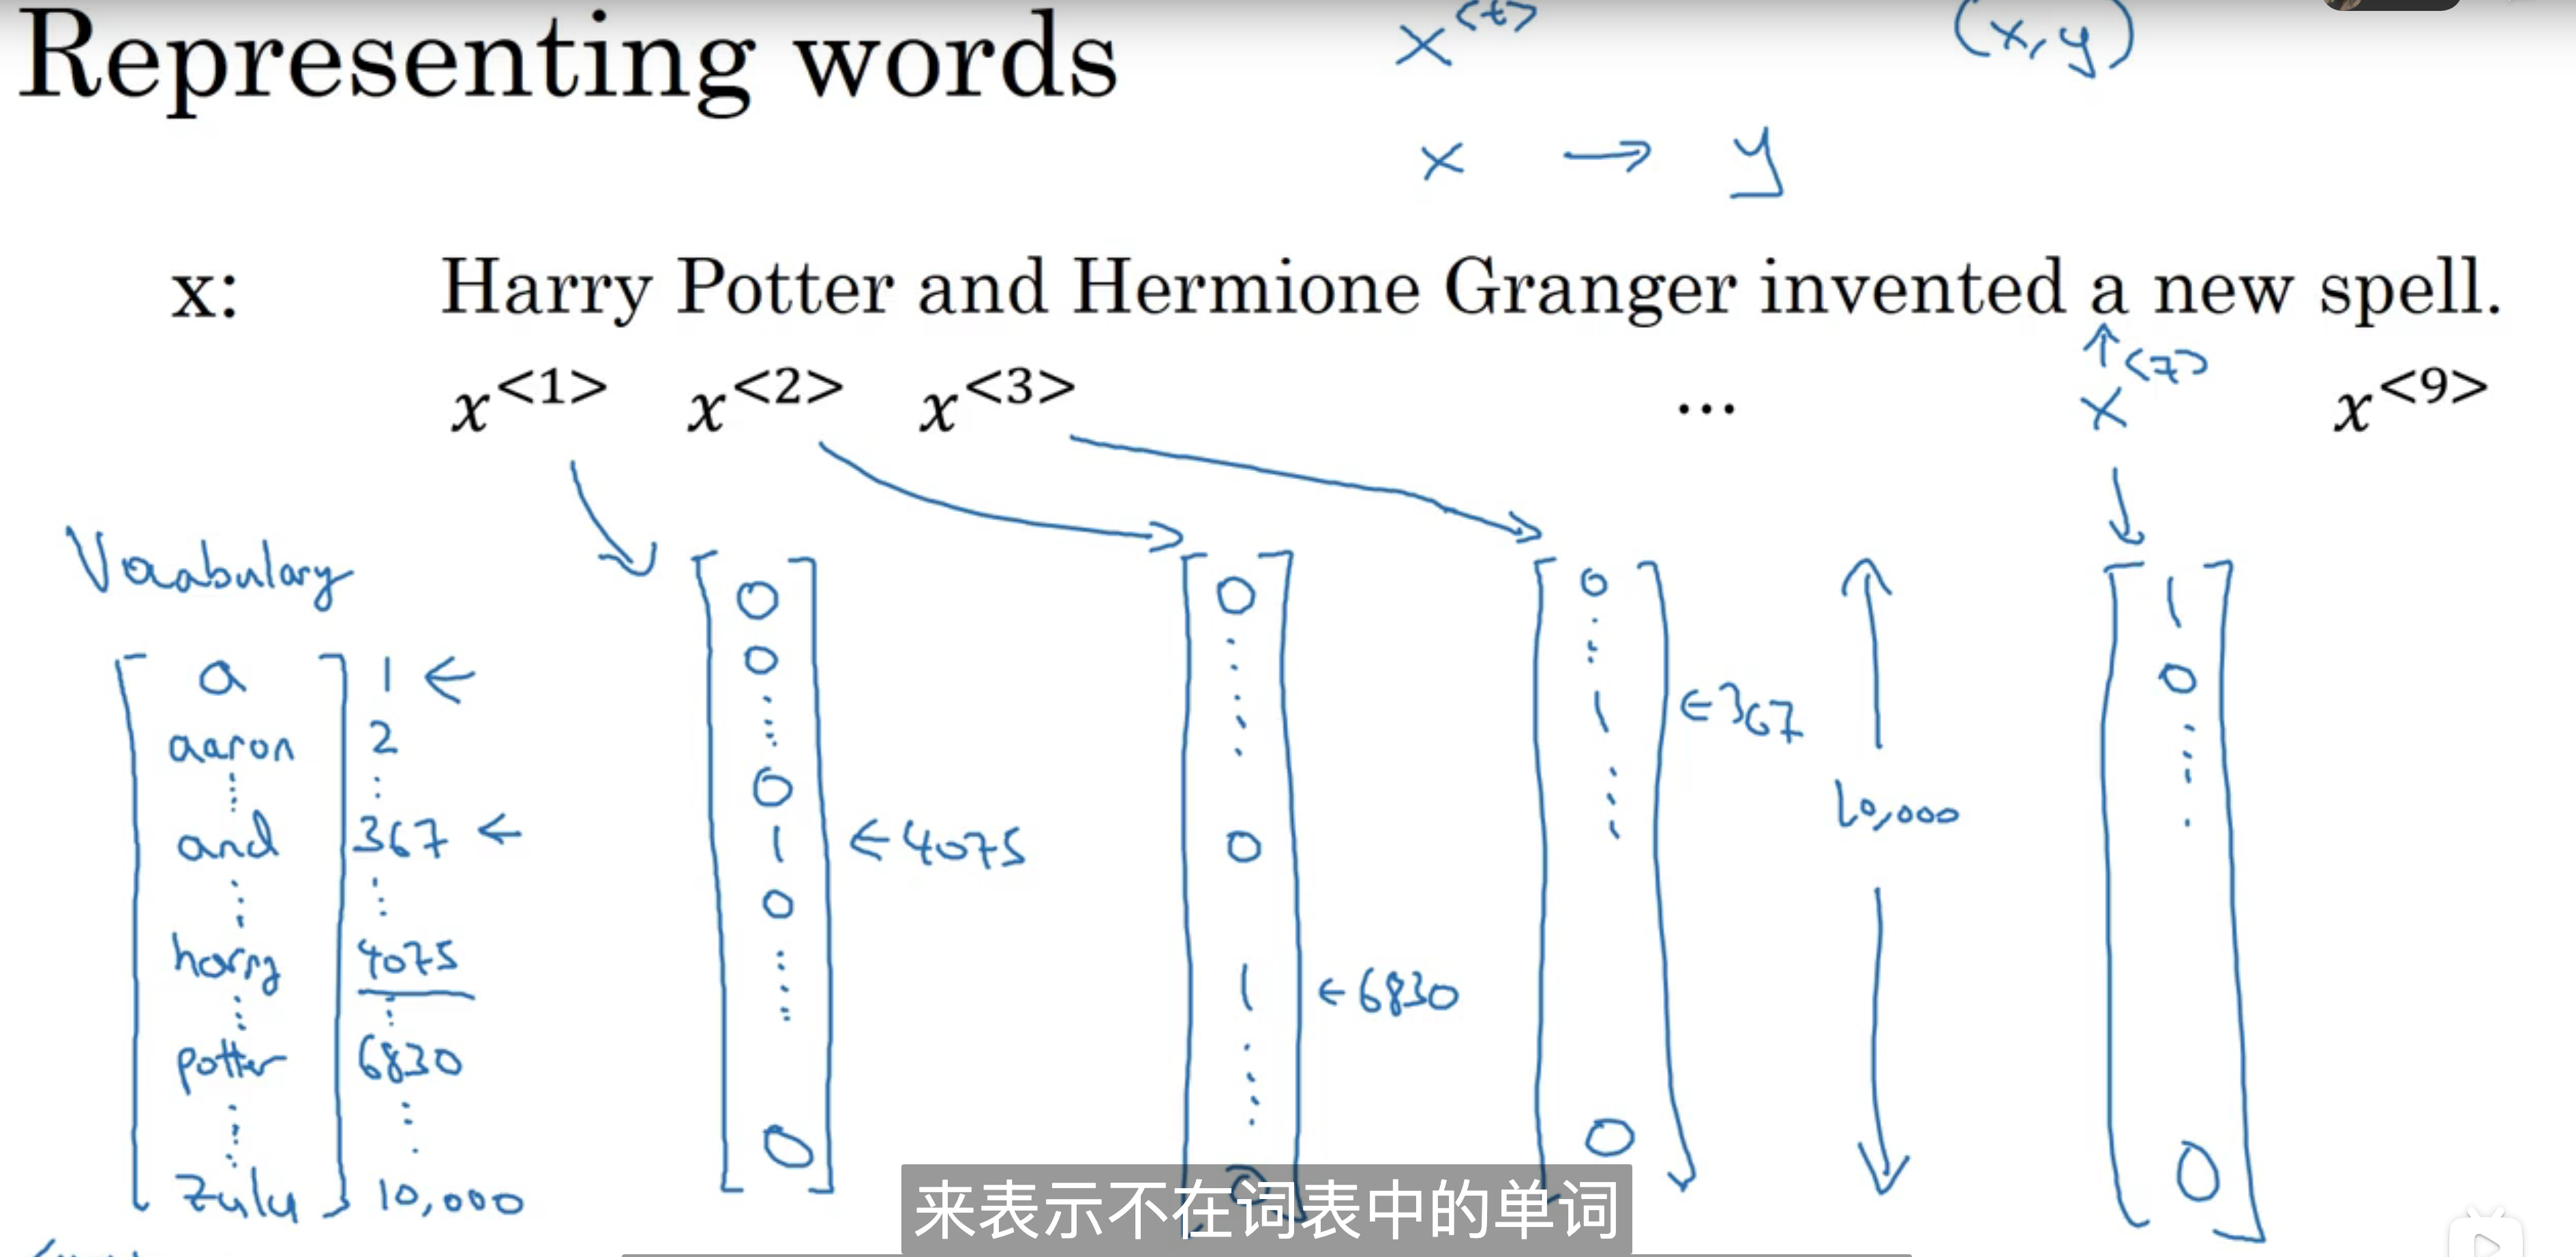 Representing words
x<t>
(x,y)
x → y
x: Harry Potter and Hermione Granger invented a new spell.
x<1> x<2> x<3> ... x<7> x<9>
Vocabulary
a 1 ←
aaron 2
and 367 ←
harry 4075
potter 6830
zulu 10,000
0
0
0
1 ← 4075
0
0
0
0
1 ← 6830
0
0
1 ← 367
0
10,000
1
0
0
来表示不在词表中的单词